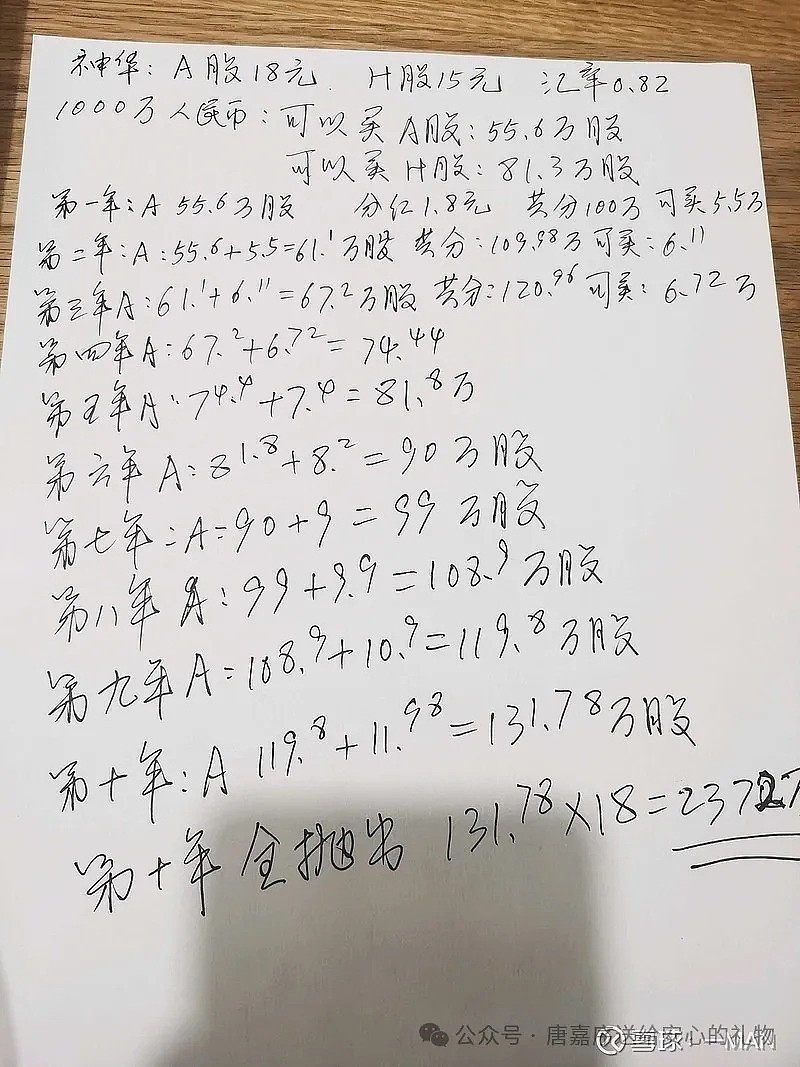 神华: A股18元. H股15元 汇率0.82
1000万人民币: 可以买A股: 55.6万股
可以买H股: 81.3万股
第一年: A 55.6万股 分红1.8元 共分100万 可买5.5万
第二年: A: 55.6+5.5=61.1万股 共分: 109.98万 可买: 6.11
第三年A: 61.1+6.11=67.2万股 共分: 120.96 可买: 6.72万
第四年A: 67.2+6.72=74.44
第五年A: 74.4+7.4=81.8万
第六年A: 81.8+8.2=90万股
第七年: A: 90+9=99万股
第八年A: 99+9.9=108.9万股
第九年A: 108.9+10.9=119.8万股
第十年: A 119.8+11.98=131.78万股
第十年全抛出 131.78×18=2372万
公众号·唐嘉庆送给安心的礼物
雪球: 一MAN